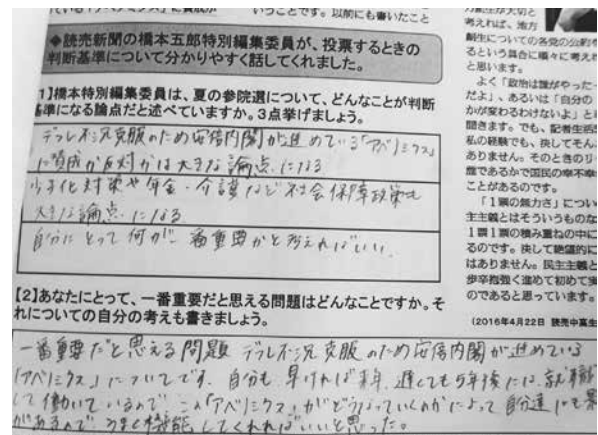 いうことです。以前にも書いたこと
◆読売新聞の橋本五郎特別編集委員が、投票するときの
判断基準について分かりやすく話してくれました。
1】橋本特別編集委員は、夏の参院選について、どんなことが判断
基準になる論点だと述べていますか。3点挙げましょう。
デフレ不況克服のため安倍内閣が進めている「アベノミクス」
に賛成か反対かは大きな論点になる
少子化対策や年金・介護など社会保障政策も
大きな論点になる
自分にとって何が一番重要かと考えればいい
【2】あなたにとって、一番重要だと思える問題はどんなことですか。そ
れについての自分の考えも書きましょう。
一番重要だと思える問題 デフレ不況克服のため安倍内閣が進めている
「アベノミクス」についてです。自分も早ければ来年、遅くても5年後には、就職
して働いているので この「アベノミクス」がどうなっていくのかによって自分達にも
があるので うまく機能してくれればいいと思った。
考えれば、地方
創生についての各党の公約や
るという具合に様々に考えれ
と思います。
よく「政治は誰がやった
だよ」、あるいは「自分の
かが変わるわけないよ」と
聞きます。でも、記者生活
私の経験でも、決してそん
ありません。そのときのリ
度であるかで国民の幸不幸
ことがあるのです。
「1票の無力さ」につい
主主義とはそういうものな
1票1票の積み重ねの中に
るのです。決して絶望的に
はありません。民主主義と
歩辛抱強く進めて初めて実
のであると思っています。
(2016年4月22日 読売中高生